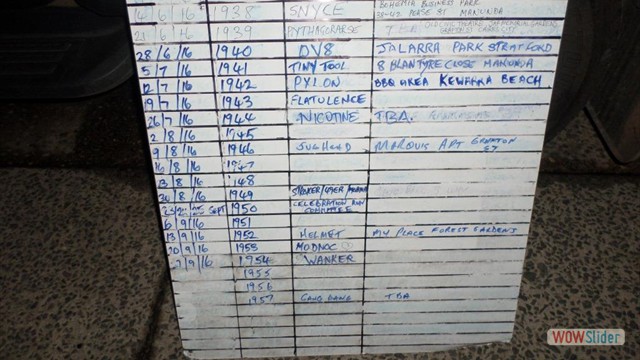 BOHEMIA BUSINESS PARK
14/6/16 1938 SNYCE 38-42 PEASE ST MANUNDA
21/6/16 1939 PYTHAGORARSE
28/6/16 1940 DV8 JALARRA PARK STRATFORD
5/7/16 1941 TINY TOOL 8 BLANTYRE CLOSE MANUNDA
12/7/16 1942 PYLON BBQ AREA KEWARRA BEACH
19/7/16 1943 FLATULENCE
26/7/16 1944 NICOTINE TBA.
2/8/16 1945
9/8/16 1946 JUGHEAD MARQUIS APT GRAFTON ST
16/8/16 1947
23/8/16 1948
30/8/16 1949
SEPT 1950 CELEBRATION RUN COMMITTEE
6/9/16 1951
13/9/16 1952 HELMET MY PLACE FOREST GARDENS
20/9/16 1953 MODNOC
27/9/16 1954 WANKER
1955
1956
1957 TBA
WOWSlider